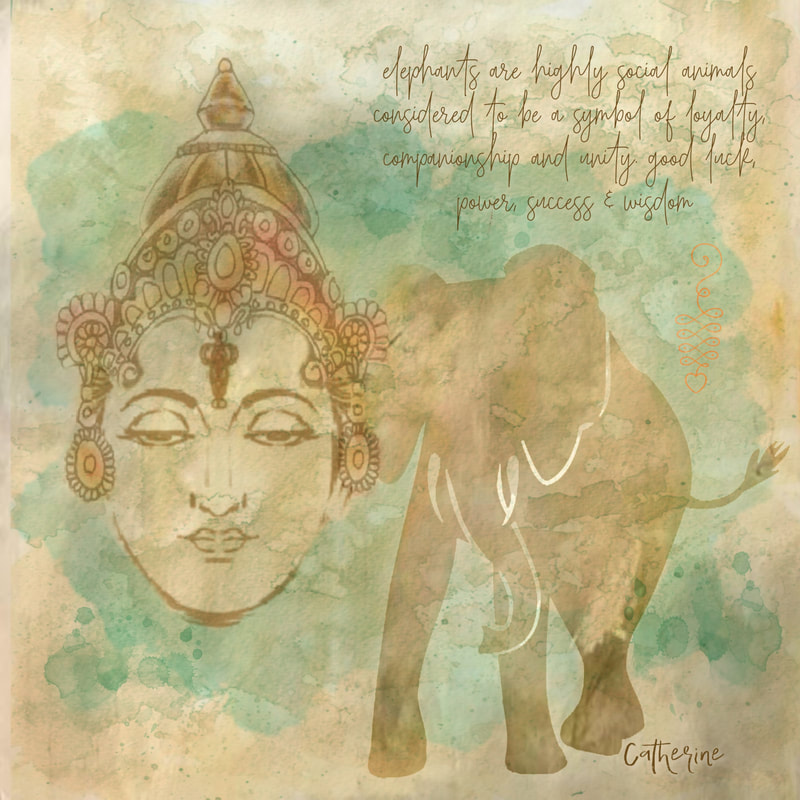 elephants are highly social animals
considered to be a symbol of loyalty,
companionship and unity. good luck,
power, success & wisdom
Catherine